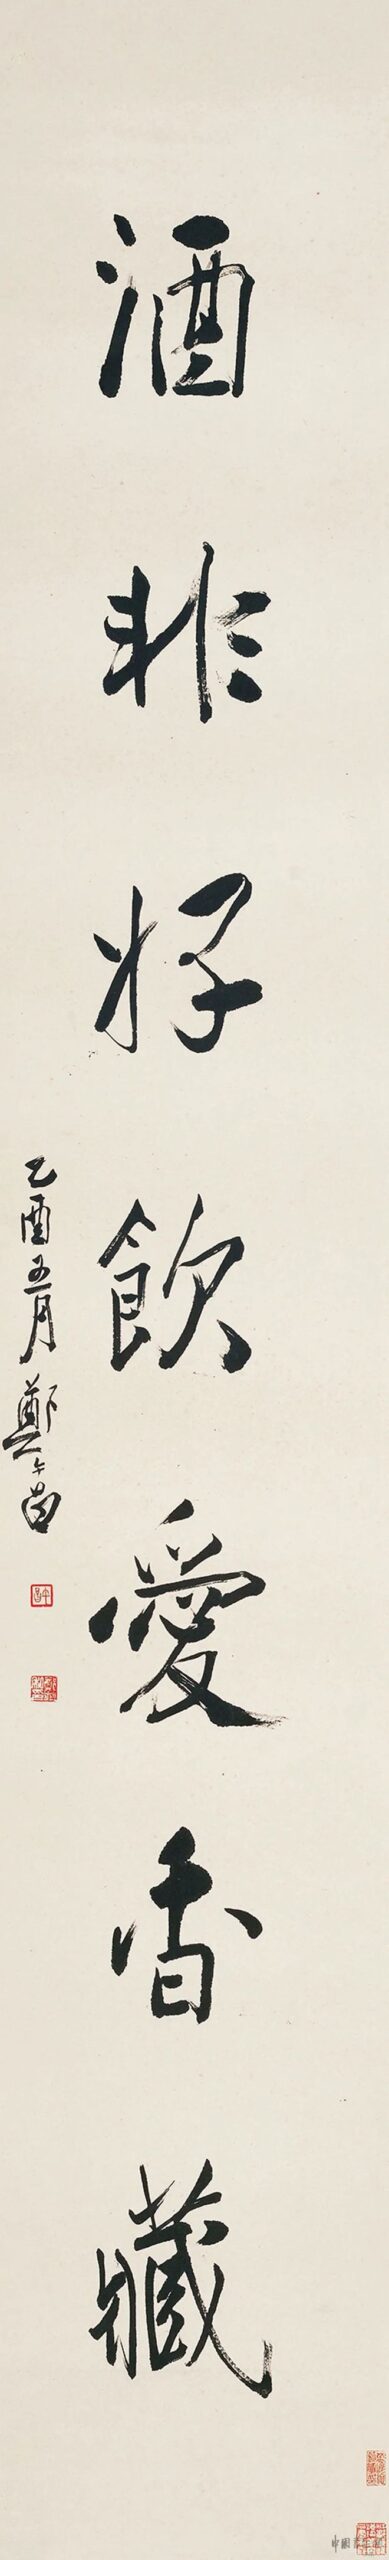 酒非好飲愛香藏
乙酉五月鄭午昌